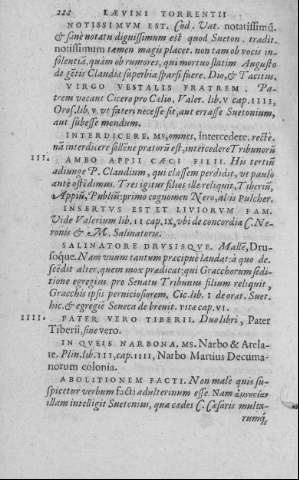 222 LÆVINI TORRENTII
NOTISSIMVM EST. Cod. Vat. notatissimũ.
& sanè notatu dignissimum est quod Sueton. tradit.
notissimum tamen magis placet. non tam ob vocis in-
solentiã, quàm ob rumores, qui mortuo statim Augusto
de gẽtis Claudiæ superbia sparsi fuere. Dio, & Tacitus.
VIRGO VESTALIS FRATREM. Pa-
trem vocant Cicero pro Celio, Valer. lib. V cap. IIII,
Oros. lib. V. vt fateri necesse sit, aut errasse Suetonium,
aut subesse mendum.
INTERDICERE. MS, omnes, intercedere. rectè.
nã interdicere sollẽne pratorũ est, intercedere Tribunorũ
III. AMBO APPII CÆCI FILII. His tertiũ
adiunge P. Claudium, qui classem perdidit, vt paulo
antè ostẽdimus. Tres igitur filios ille reliquit, Tiberiũ,
Appiũ, Publiũ: primo cognomen Nero, alijs Pulcher.
INSERTVS EST ET LIVIORVM FAM.
Vide Valerium lib. II cap. IX, vbi de concordia C. Ne-
ronis & M. Salinatoris.
SALINATORE DRVSISQVE. Mallẽ, Dru-
soque. Nam vnum tantum præcipuè laudat: à quo de-
scẽdit alter, quem mox prædicat: qui Gracchorum sedi-
tione egregiam pro Senatu Tribunum filium reliquit,
Gracchis ipsis perniciosiorem. Cic. lib. I de orat. Suet.
hic. & egregiè Seneca de breuit. vitæ cap. VI.
IIII. PATER VERO TIBERII. Duo libri, Pater
Tiberii, sine vero.
IN QVEIS NARBONA. MS. Narbo & Arela-
te. Plin. lib. III, cap. IIII, Narbo Martius Decuma-
norum colonia.
ABOLITIONEM FACTI. Non malè quis su-
spicetur verbum facti adulterinum esse. Nam ἀμνηστίαν
illam intelligit Suetonius, qua cædes C. Cæsaris multa-
rumq́;